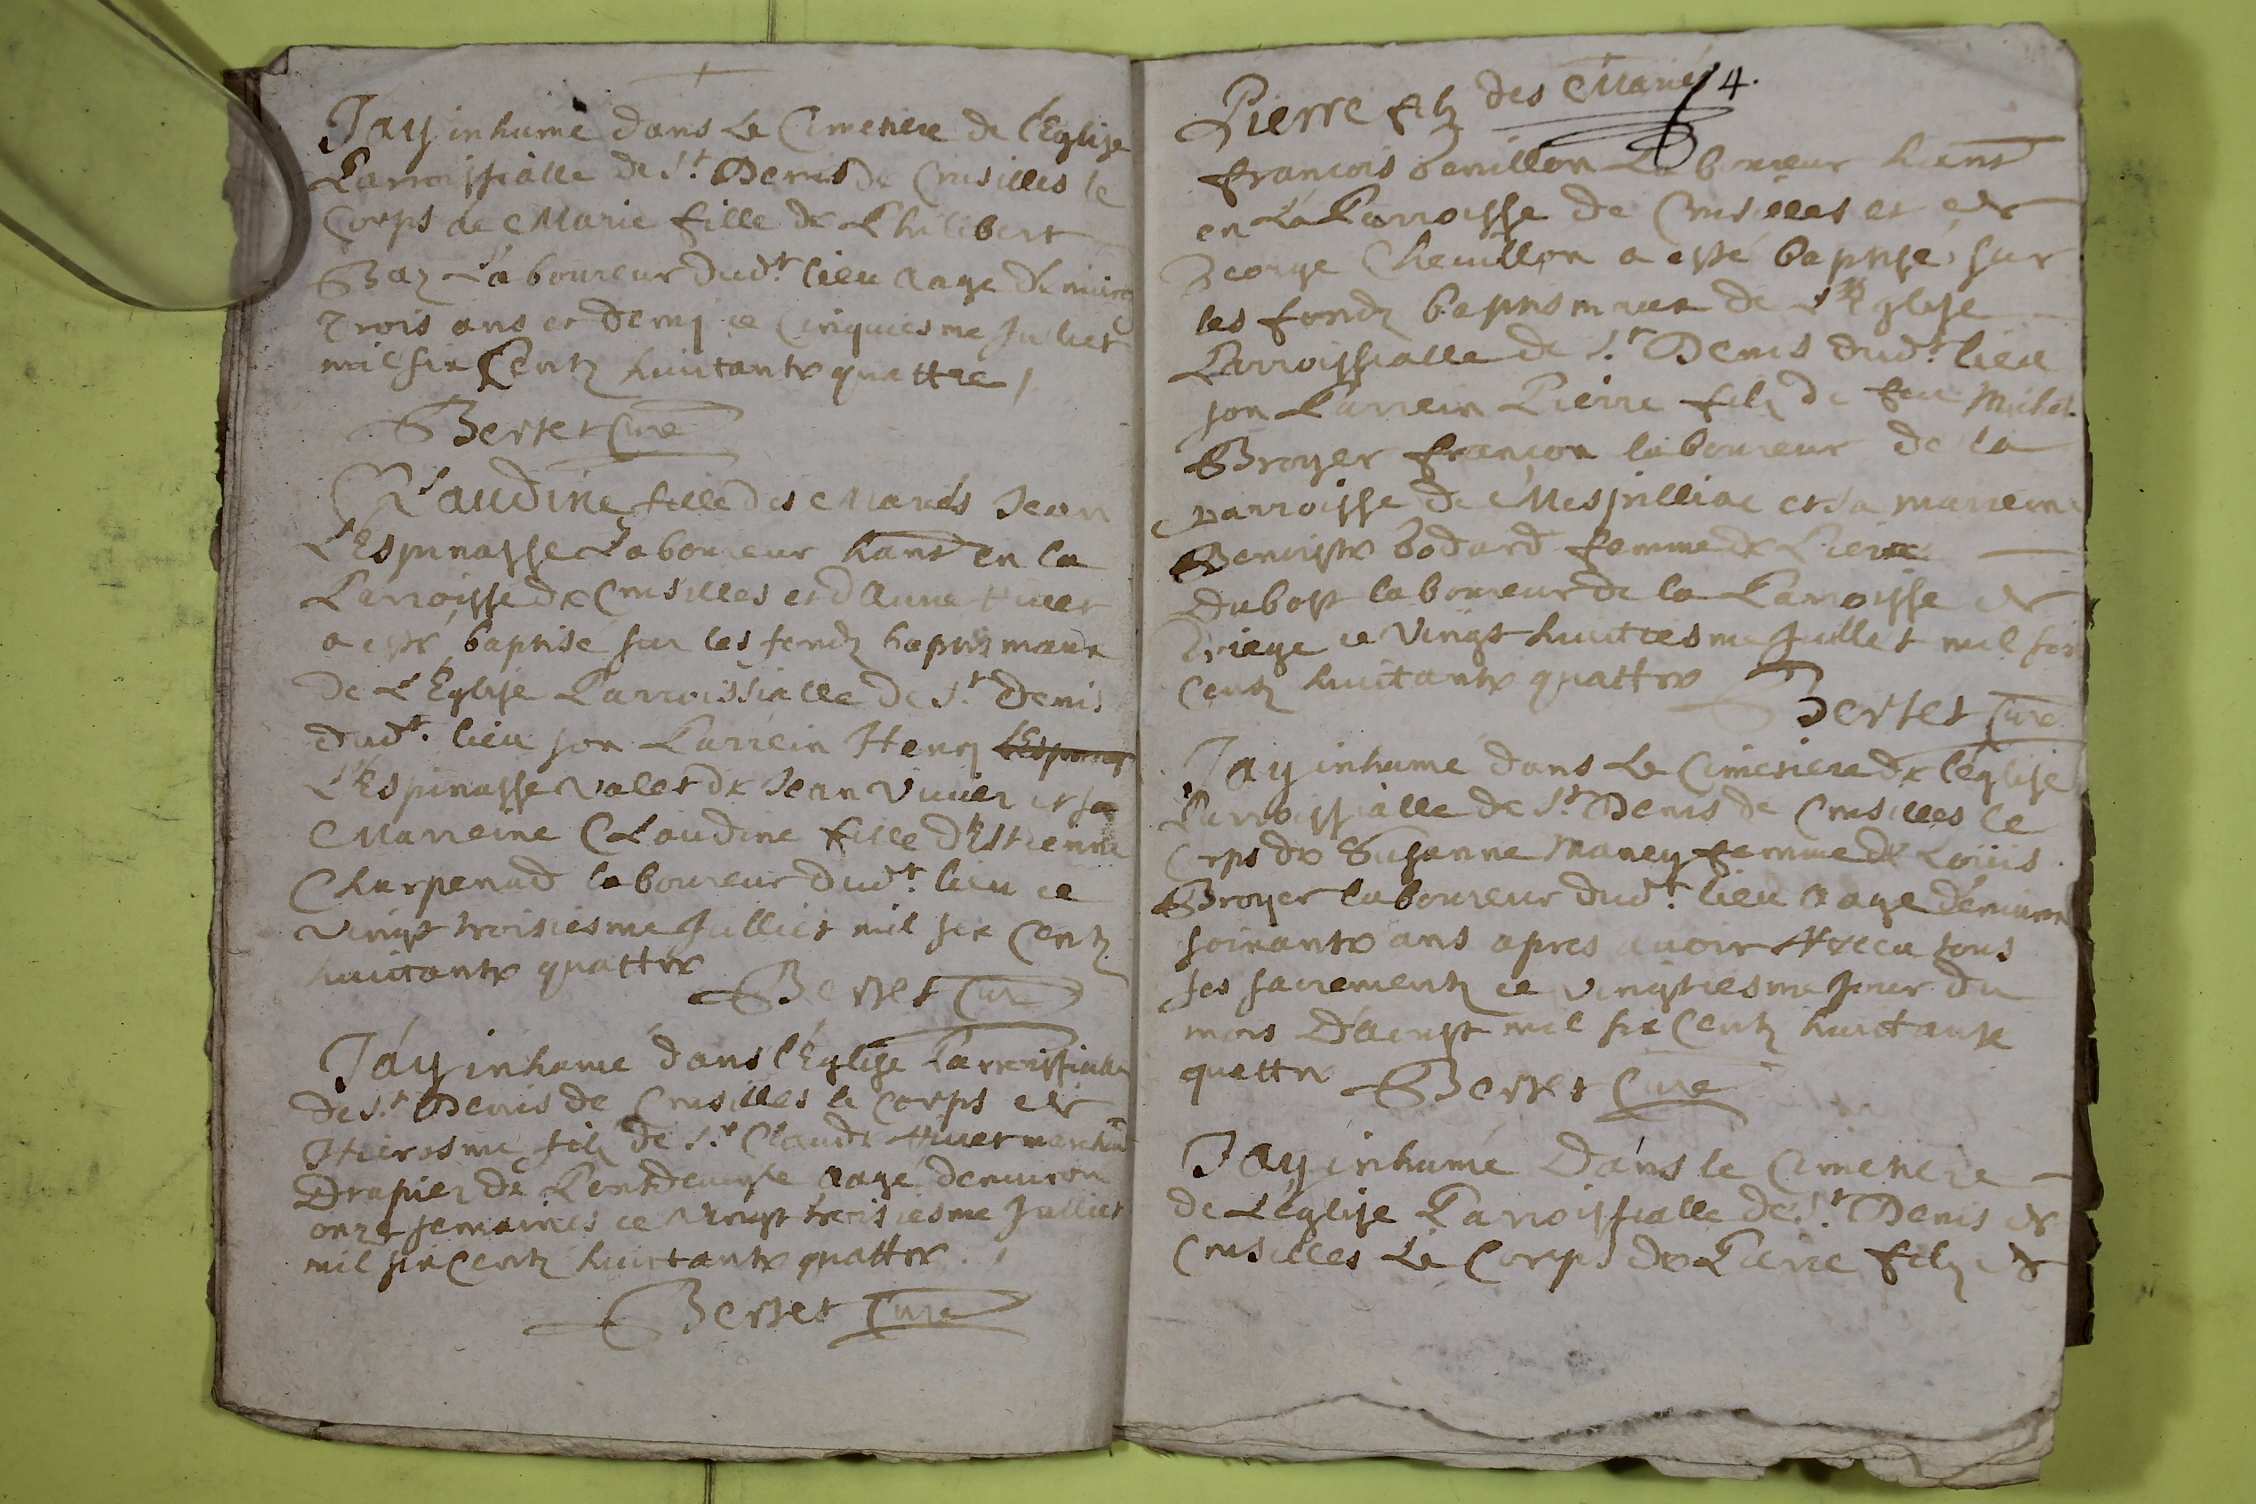 Jay inhumé dans Le Cimetiere de l'Eglise
Parroissialle de St. Denis de Crusilles le
Corps de Marie fille de Philibert
Baz Laboureur dudt. lieu aage denviron
Trois ans et demj ce Cinquiesme Julliet
mil six Centz huictante quattre
Berset Curé
Claudine fille des Mariés Jean
L'Espinasse Laboureur hant en la
Parroisse de Crusilles et d'Anne
a esté baptisé sur les fondz baptismaux
de L'Eglise Parroissialle de St. Denis
dudt. lieu son Parrein Henrj
L'Espinasse valet de Jean Vivier et sa
Marreine Claudine fille d'Estienne
Charpenad laboureur dudt. lieu ce
vingt troisiesme Julliet mil six Centz
huictante quattre
Berset Curé
Jay inhumé dans l'Eglise Parroissialle
de St. Denis de Crusilles le Corps de
Hierosme filz de Sr. Claude marchand
Drapier de aagé denviron
onze semaines ce Vingt troisiesme Julliet
mil six Centz huictante quattre
Berset Curé
4.
Pierre filz des Mariés
françois Laboureur hant
en La Parroisse de Crusilles et de
George Chevillon a esté baptisé sur
les fondz baptismaux de L'Eglise
Parroissialle de St. Denis dudt. lieu
son Parrein Pierre filz de feu Michel
Broyer françon laboureur de la
parroisse de Mespilliac et sa marreine
Benoiste bodard femme de Pierre
Dubost laboureur de la Parroisse de
ce Vingt huictiesme Juillet mil six
Centz huictante quattre
Berset Curé
Jay inhumé dans Le Cimetiere de l'église
Parroissialle de St. Denis de Crusilles le
Corps de Susanne Maney femme de Loüis
Broyer laboureur dudt. lieu aage d'environ
soixante ans apres avoir Receu tous
ses sacrementz ce vingtiesme Jour du
mois D'aoust mil six Centz huictante
quattre Berset Curé
Jay inhumé Dans le Cimetiere
de L'église Parroissialle de St. Denis de
Crusilles Le Corps de Pierre filz de